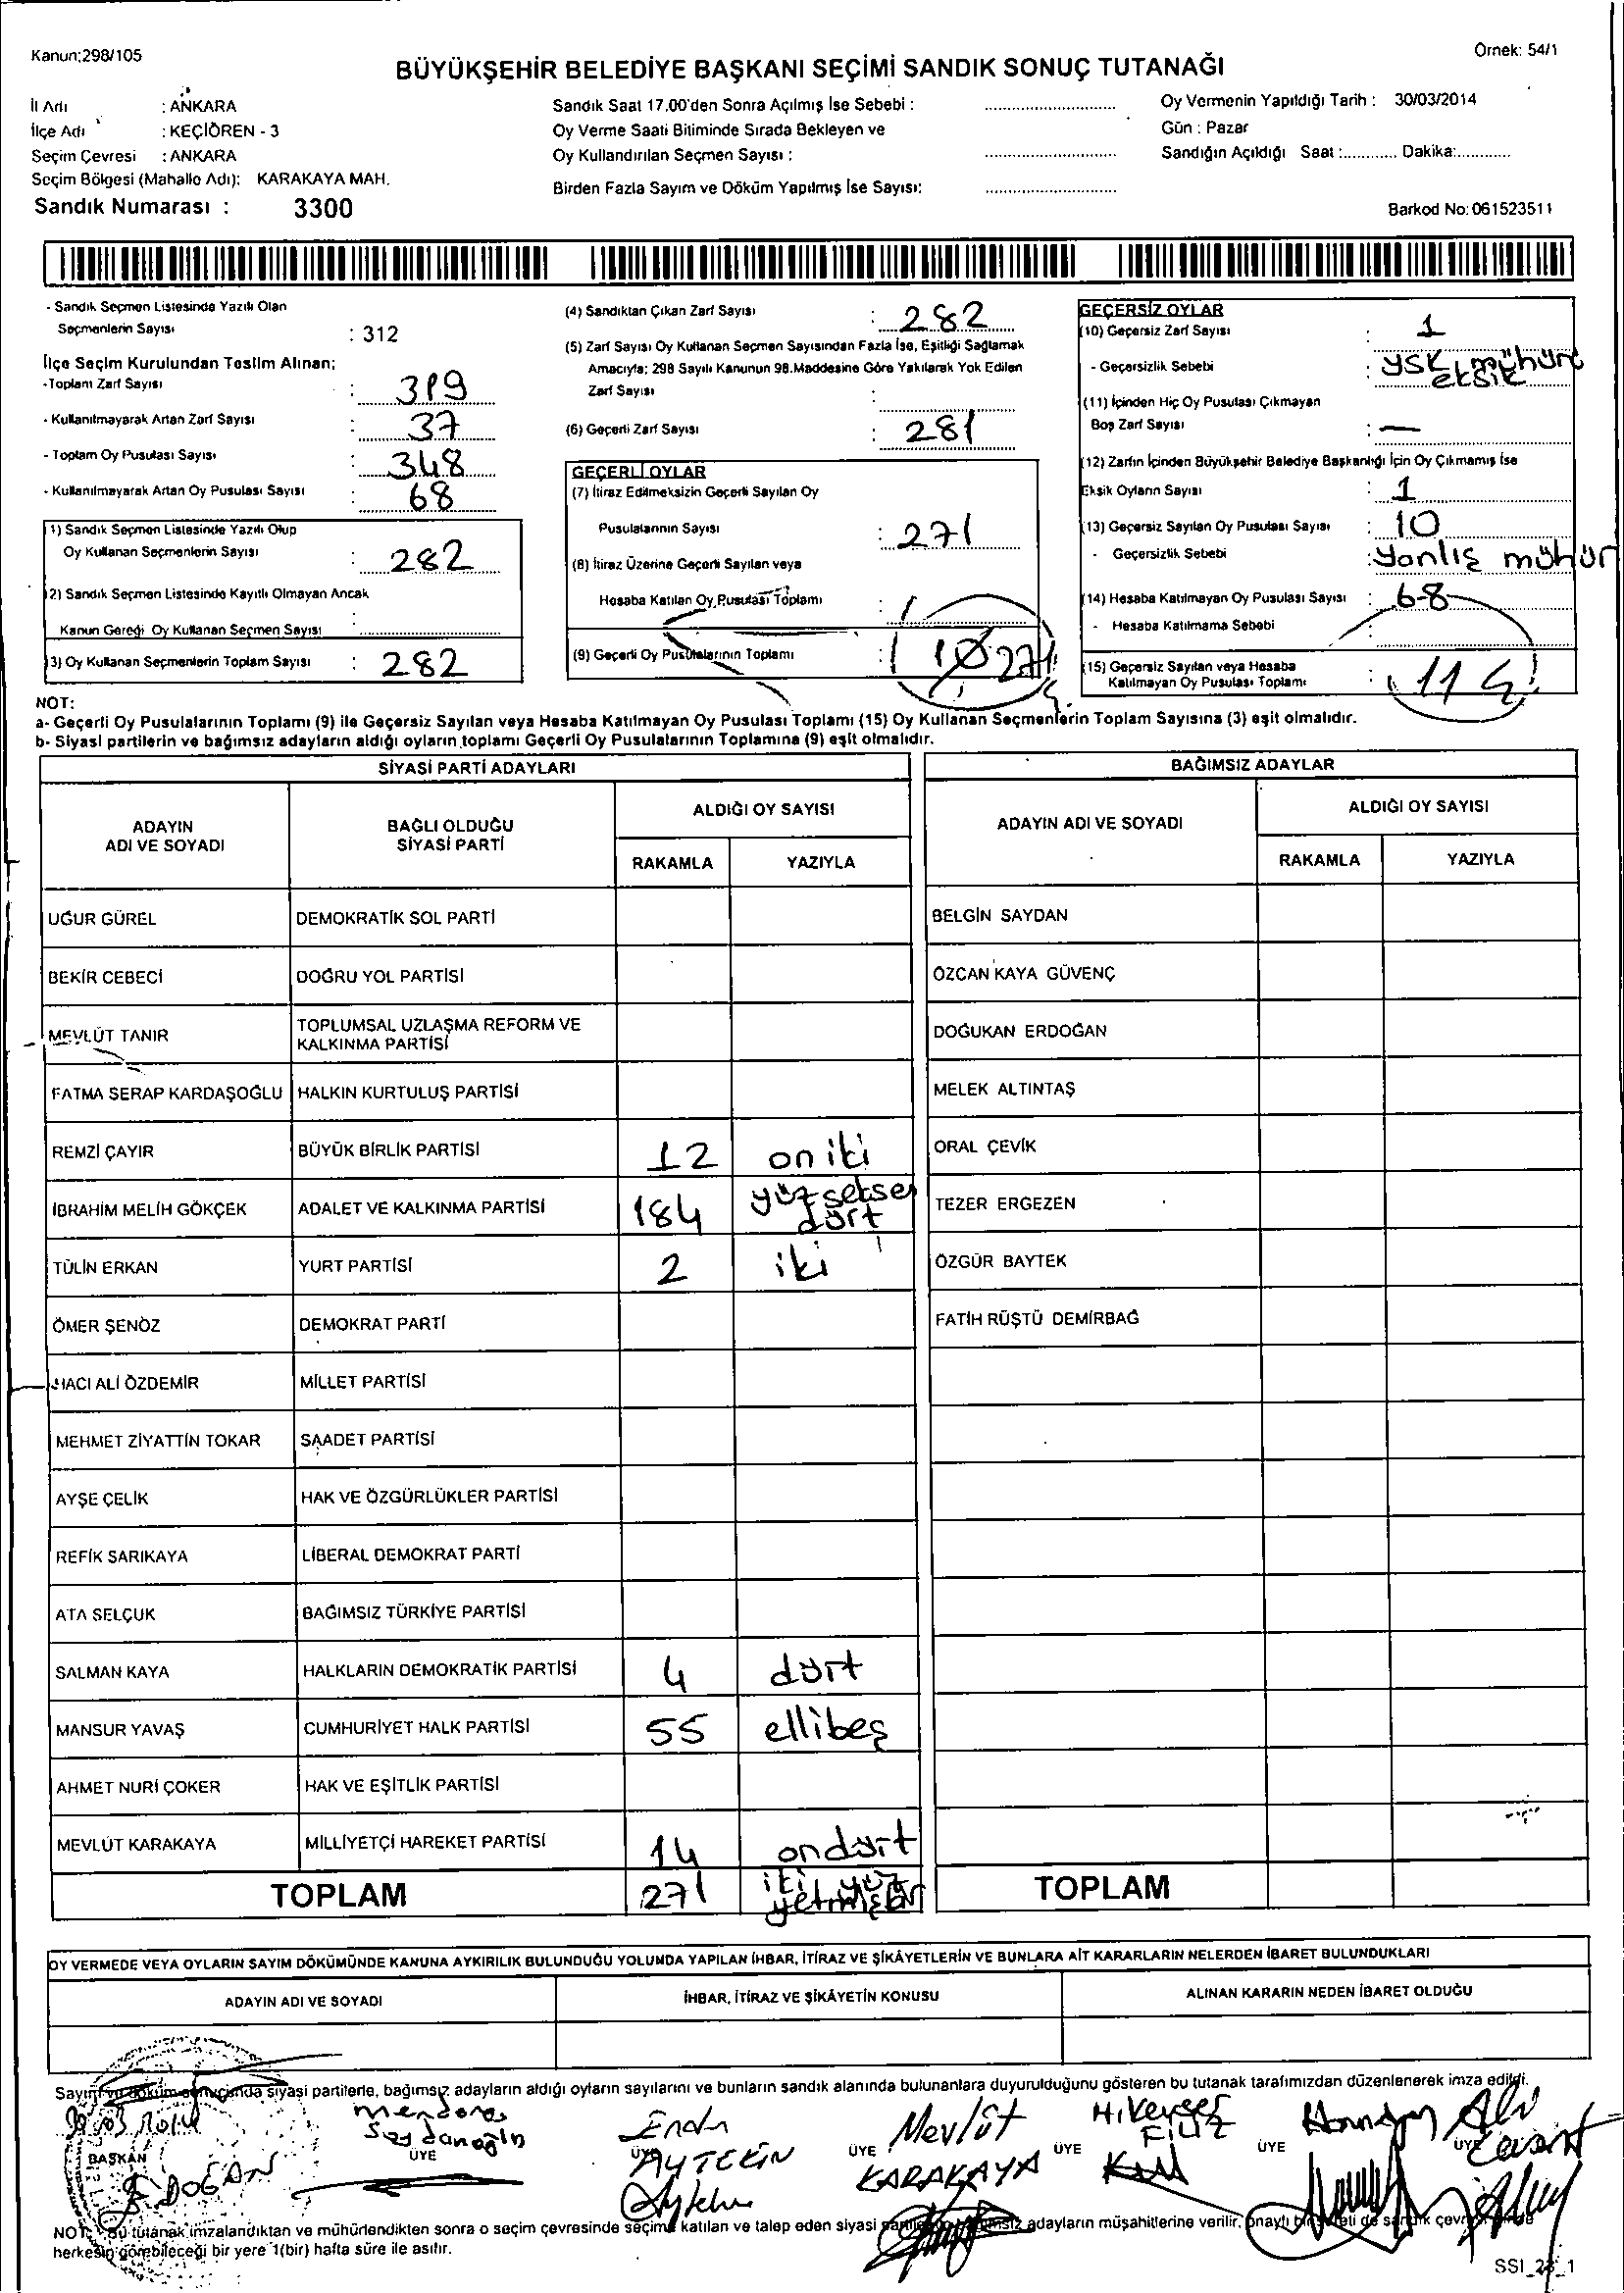 Kanun;298/105
Örnek: 54/1
BÜYÜKŞEHİR BELEDİYE BAŞKANI SEÇİMİ SANDIK SONUÇ TUTANAĞI
İl Adı : ANKARA
İlçe Adı : KEÇİÖREN - 3
Seçim Çevresi : ANKARA
Seçim Bölgesi (Mahalle Adı): KARAKAYA MAH.
Sandık Numarası : 3300
Sandık Saat 17.00'den Sonra Açılmış İse Sebebi :
Oy Verme Saati Bitiminde Sırada Bekleyen ve
Oy Kullandırılan Seçmen Sayısı :
Birden Fazla Sayım ve Döküm Yapılmış İse Sayısı:
Oy Vermenin Yapıldığı Tarih : 30/03/2014
Gün : Pazar
Sandığın Açıldığı Saat :............ Dakika:............
Barkod No: 061523511
- Sandık Seçmen Listesinde Yazılı Olan
Seçmenlerin Sayısı : 312
İlçe Seçim Kurulundan Teslim Alınan;
- Toplam Zarf Sayısı : 319
- Kullanılmayarak Artan Zarf Sayısı : 37
- Toplam Oy Pusulası Sayısı : 348
- Kullanılmayarak Artan Oy Pusulası Sayısı : 68
1) Sandık Seçmen Listesinde Yazılı Olup
Oy Kullanan Seçmenlerin Sayısı : 282
2) Sandık Seçmen Listesinde Kayıtlı Olmayan Ancak
Kanun Gereği Oy Kullanan Seçmen Sayısı :
3) Oy Kullanan Seçmenlerin Toplam Sayısı : 282
(4) Sandıktan Çıkan Zarf Sayısı : 282
(5) Zarf Sayısı Oy Kullanan Seçmen Sayısından Fazla İse, Eşitliği Sağlamak
Amacıyla; 298 Sayılı Kanunun 98.Maddesine Göre Yakılarak Yok Edilen
Zarf Sayısı :
(6) Geçerli Zarf Sayısı : 281
GEÇERLİ OYLAR
(7) İtiraz Edilmeksizin Geçerli Sayılan Oy
Pusulalarının Sayısı : 271
(8) İtiraz Üzerine Geçerli Sayılan veya
Hesaba Katılan Oy Pusulası Toplamı :
(9) Geçerli Oy Pusulalarının Toplamı : 271
GEÇERSİZ OYLAR
(10) Geçersiz Zarf Sayısı : 1
- Geçersizlik Sebebi : YSK mühürü
eksik
(11) İçinden Hiç Oy Pusulası Çıkmayan
Boş Zarf Sayısı : —
(12) Zarfın İçinden Büyükşehir Belediye Başkanlığı İçin Oy Çıkmamış İse
Eksik Oyların Sayısı : 1
(13) Geçersiz Sayılan Oy Pusulası Sayısı : 10
- Geçersizlik Sebebi : yanlış mühür
(14) Hesaba Katılmayan Oy Pusulası Sayısı : 68
- Hesaba Katılmama Sebebi :
(15) Geçersiz Sayılan veya Hesaba
Katılmayan Oy Pusulası Toplamı : 11
NOT:
a- Geçerli Oy Pusulalarının Toplamı (9) ile Geçersiz Sayılan veya Hesaba Katılmayan Oy Pusulası Toplamı (15) Oy Kullanan Seçmenlerin Toplam Sayısına (3) eşit olmalıdır.
b- Siyasi partilerin ve bağımsız adayların aldığı oyların toplamı Geçerli Oy Pusulalarının Toplamına (9) eşit olmalıdır.
SİYASİ PARTİ ADAYLARI
ADAYIN ADI VE SOYADI
BAĞLI OLDUĞU SİYASİ PARTİ
ALDIĞI OY SAYISI
RAKAMLA YAZIYLA
UĞUR GÜREL DEMOKRATİK SOL PARTİ
BEKİR CEBECİ DOĞRU YOL PARTİSİ
MEVLÜT TANIR TOPLUMSAL UZLAŞMA REFORM VE KALKINMA PARTİSİ
FATMA SERAP KARDAŞOĞLU HALKIN KURTULUŞ PARTİSİ
REMZİ ÇAYIR BÜYÜK BİRLİK PARTİSİ 12 on iki
İBRAHİM MELİH GÖKÇEK ADALET VE KALKINMA PARTİSİ 184 yüz seksen dört
TÜLİN ERKAN YURT PARTİSİ 2 iki
ÖMER ŞENÖZ DEMOKRAT PARTİ
HACI ALİ ÖZDEMİR MİLLET PARTİSİ
MEHMET ZİYATTİN TOKAR SAADET PARTİSİ
AYŞE ÇELİK HAK VE ÖZGÜRLÜKLER PARTİSİ
REFİK SARIKAYA LİBERAL DEMOKRAT PARTİ
ATA SELÇUK BAĞIMSIZ TÜRKİYE PARTİSİ
SALMAN KAYA HALKLARIN DEMOKRATİK PARTİSİ 4 dört
MANSUR YAVAŞ CUMHURİYET HALK PARTİSİ 55 ellibeş
AHMET NURİ ÇOKER HAK VE EŞİTLİK PARTİSİ
MEVLÜT KARAKAYA MİLLİYETÇİ HAREKET PARTİSİ 14 ondört
TOPLAM 271 iki yüz yetmişbir
BAĞIMSIZ ADAYLAR
ADAYIN ADI VE SOYADI
ALDIĞI OY SAYISI
RAKAMLA YAZIYLA
BELGİN SAYDAN
ÖZCAN KAYA GÜVENÇ
DOĞUKAN ERDOĞAN
MELEK ALTINTAŞ
ORAL ÇEVİK
TEZER ERGEZEN
ÖZGÜR BAYTEK
FATİH RÜŞTÜ DEMİRBAĞ
TOPLAM
OY VERMEDE VEYA OYLARIN SAYIM DÖKÜMÜNDE KANUNA AYKIRILIK BULUNDUĞU YOLUNDA YAPILAN İHBAR, İTİRAZ VE ŞİKÂYETLERİN VE BUNLARA AİT KARARLARIN NELERDEN İBARET BULUNDUKLARI
ADAYIN ADI VE SOYADI
İHBAR, İTİRAZ VE ŞİKÂYETİN KONUSU
ALINAN KARARIN NEDEN İBARET OLDUĞU
Sayım ve döküm sonucunda siyasi partilerle, bağımsız adayların aldığı oyların sayılarını ve bunların sandık alanında bulunanlara duyurulduğunu gösteren bu tutanak tarafımızdan düzenlenerek imza edildi.
BAŞKAN ÜYE ÜYE ÜYE ÜYE ÜYE ÜYE
DOĞAN
AYTEKİN
Mevlüt
KARAKAYA
FİLİZ
NOT: Bu tutanak imzalandıktan ve mühürlendikten sonra o seçim çevresinde seçime katılan ve talep eden siyasi adayların müşahitlerine verilir,
herkesin görebileceği bir yere 1(bir) hafta süre ile asılır.